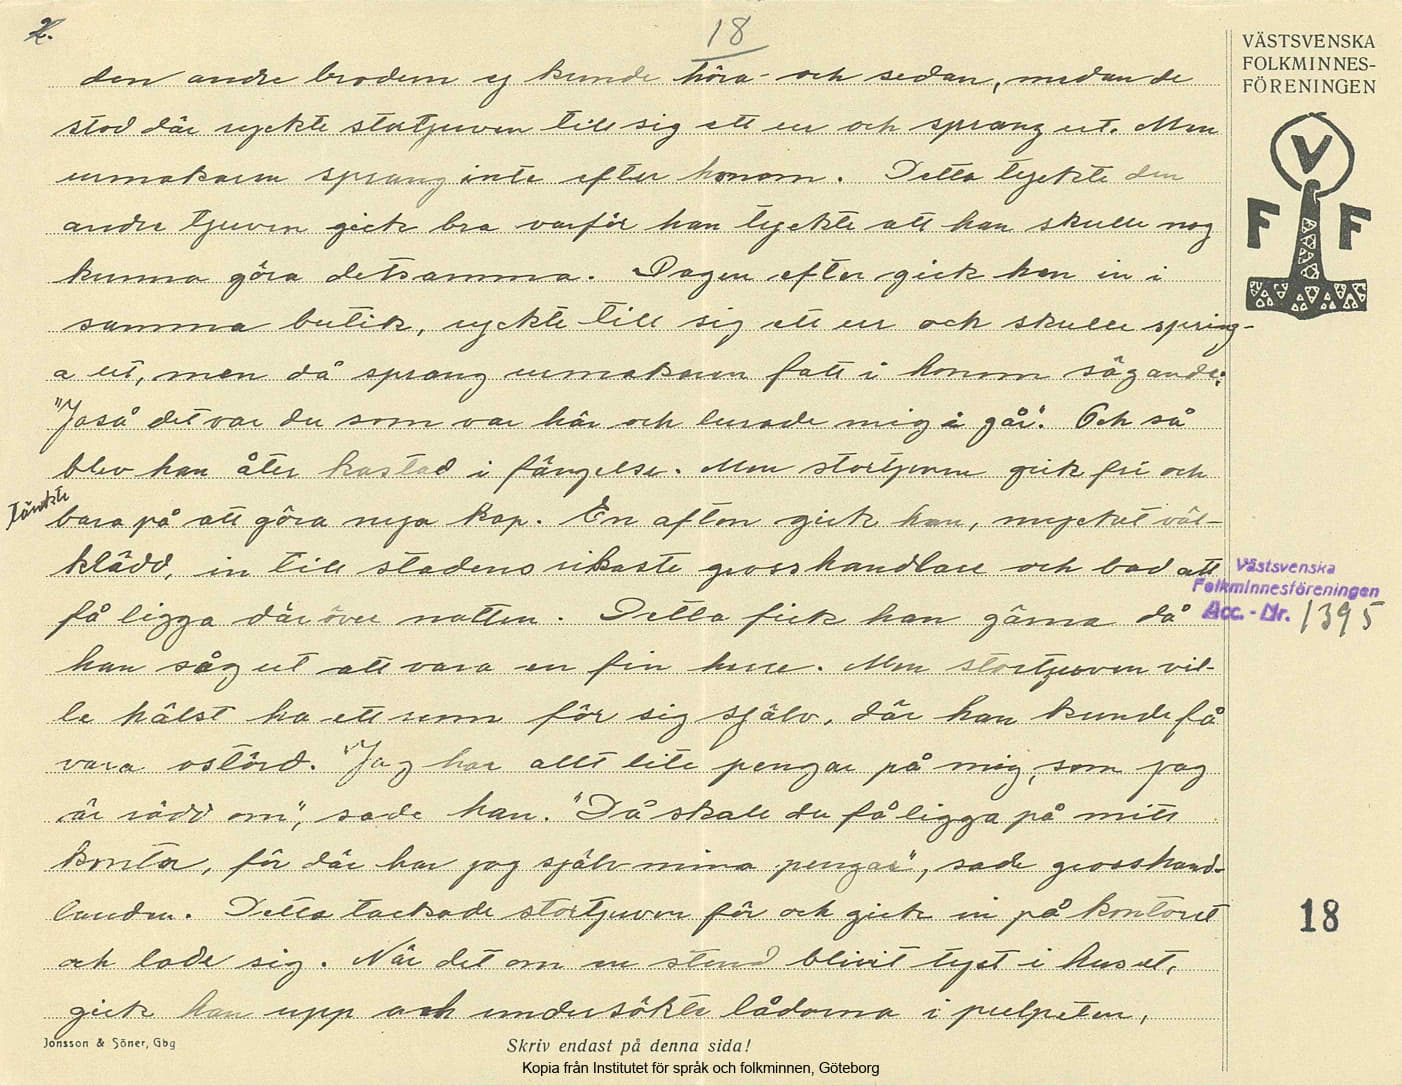 2.
18
den andre brodern ej kunde höra - och sedan, medan de
stod där ryckte stortjuven till sig ett ur och sprang ut. Men
urmakaren sprang inte efter honom. Detta tyckte den
andre tjuven gick bra varför han tyckte att han skulle nog
kunna göra detsamma. Dagen efter gick han in i
samma butik, ryckte till sig ett ur och skulle spring-
a ut, men då sprang urmakaren fatt i honom sägande:
"Jaså det var du som var här och lurade mig i går". Och så
blev han åter kastad i fängelse. Men stortjuven gick fri och
tänkte
bara på att göra nya kap. En afton gick han, mycket väl-
klädd, in till stadens rikaste grosshandlare och bad att
få ligga där över natten. Detta fick han gärna då
han såg ut att vara en fin herre. Men stortjuven vil-
le hälst ha ett rum för sig själv, där han kunde få
vara ostörd. "Jag har allt lite pengar på mig, som jag
är rädd om", sade han. "Då skall du få ligga på mitt
kontor, för där har jag själv mina pengar", sade grosshand-
landen. Detta tackade stortjuven för och gick in på kontoret
och lade sig. När det om en stund blivit tyst i huset,
gick han upp och undersökte lådorna i pulpeten,
VÄSTSVENSKA
FOLKMINNES-
FÖRENINGEN
V
F F
Västsvenska
Folkminnesföreningen
Acc.-Nr. 1395
18
Jonsson & Söner, Gbg
Skriv endast på denna sida!
Kopia från Institutet för språk och folkminnen, Göteborg